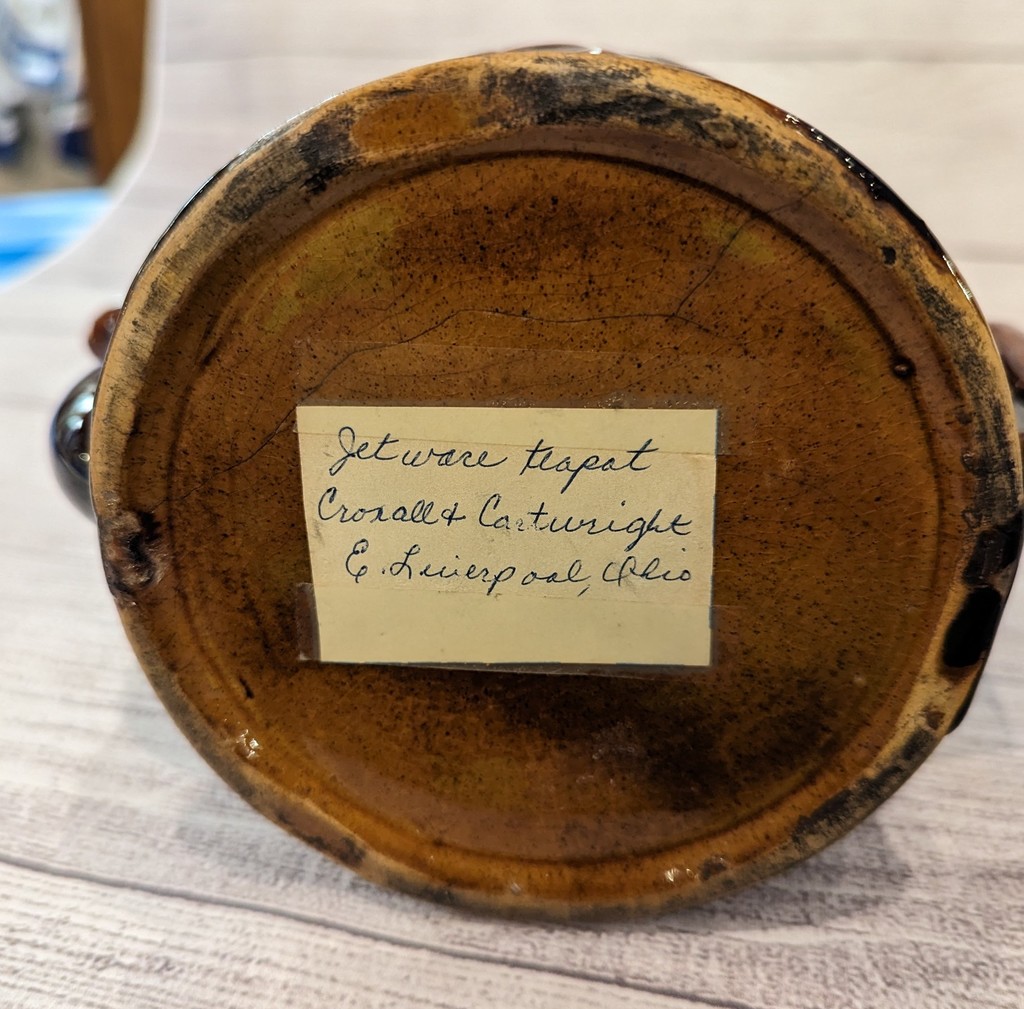 Jet ware teapot
Croxall & Cartwright
E. Liverpool, Ohio